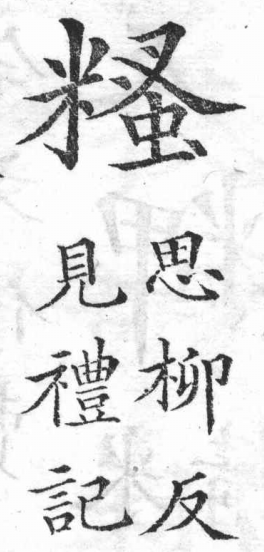 思柳反
見禮記